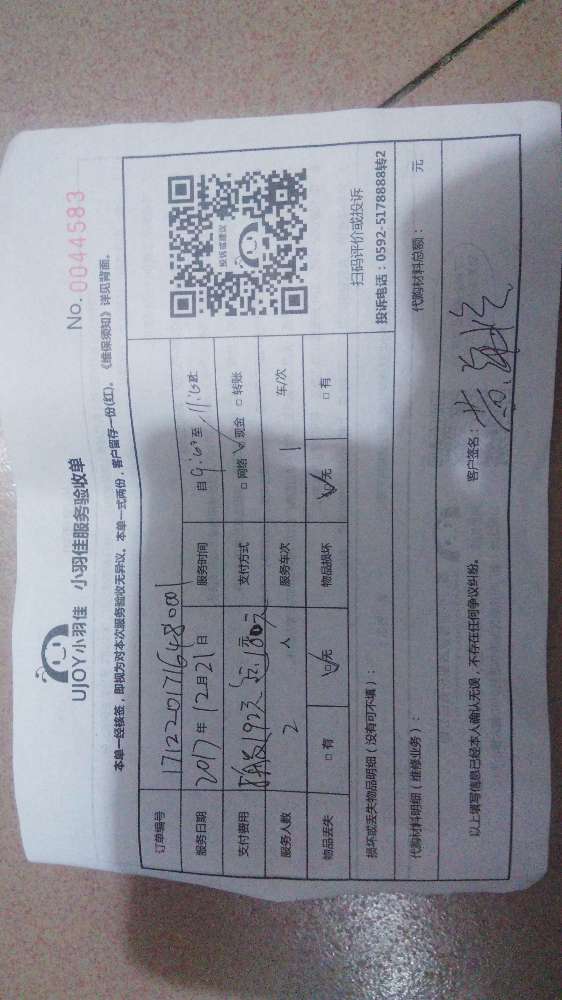 UJOY小羽佳 小羽佳服务验收单
No. 0044583
本单一经核签，即视为对本次服务验收无异议。本单一式两份，客户留存一份(红)。《维保须知》详见背面。
订单编号 1712201716480001
服务日期 2017年12月21日 服务时间 自9:00至11:00止
支付费用 元 支付方式 □ 网络 ☑ 现金 □ 转账
服务人数 2 人 服务车次 1 车/次
物品丢失 □ 有 ☑ 无 物品损坏 ☑ 无 □ 有
投诉或建议
UJOY
扫码评价或投诉
投诉电话：0592-5178888转2
损坏或丢失物品明细（没有可不填）：
代购材料明细（维修业务）： 代购材料总额： 元
以上填写信息已经本人确认无误，不存在任何争议纠纷。 客户签名：